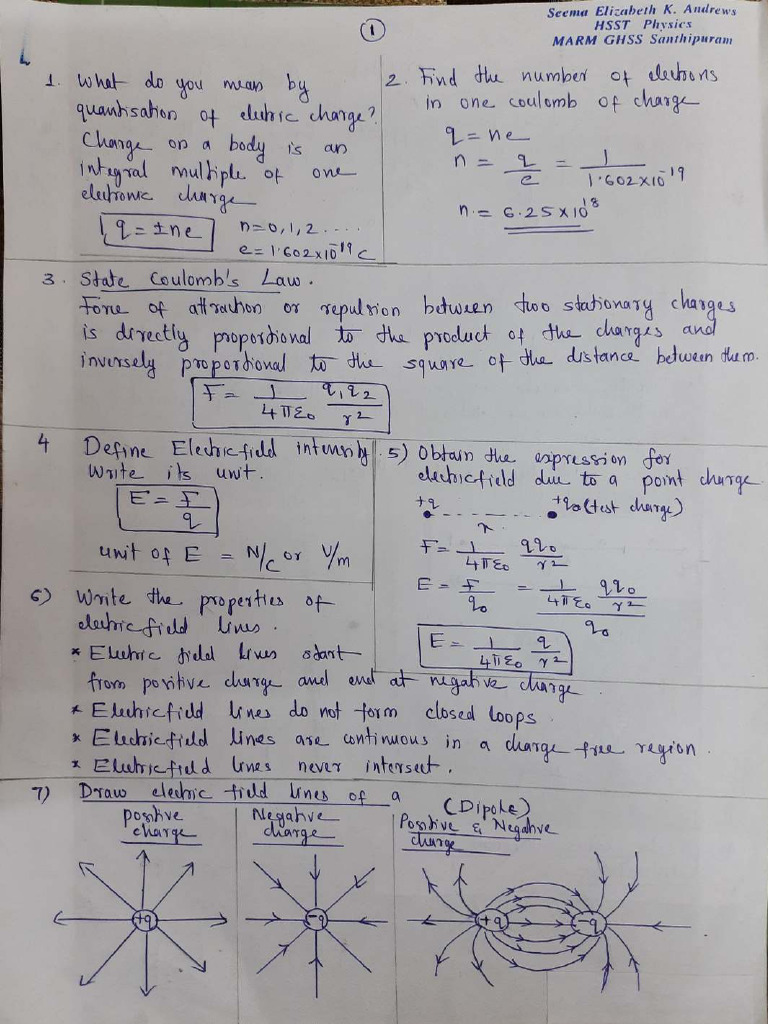 Seema Elizabeth K. Andrews
HSST Physics
MARM GHSS Santhipuram
1
1. What do you mean by
quantisation of electric charge?
Charge on a body is an
integral multiple of one
electronic charge
q = ±ne n=0,1,2....
e = 1.602x10^-19 C
2. Find the number of electrons
in one coulomb of charge
q = ne
n = q/e = 1/1.602x10^-19
n = 6.25x10^18
3. State Coulomb's Law.
Force of attraction or repulsion between two stationary charges
is directly proportional to the product of the charges and
inversely proportional to the square of the distance between them.
F = 1/4πε0 q1q2/r2
4 Define Electric field intensity
Write its unit.
E = F/q
unit of E = N/C or V/m
5) Obtain the expression for
electric field due to a point charge
+q +q0 (test charge)
r
F = 1/4πε0 qq0/r2
E = F/q0 = 1/4πε0 qq0/r2 / q0
E = 1/4πε0 q/r2
6) Write the properties of
electric field lines.
* Electric field lines start
from positive charge and end at negative charge
* Electric field lines do not form closed loops
* Electric field lines are continuous in a charge free region.
* Electric field lines never intersect.
7) Draw electric field lines of a
positive
charge
Negative
charge
(Dipole)
Positive & Negative
charge
+q
-q
+q -q